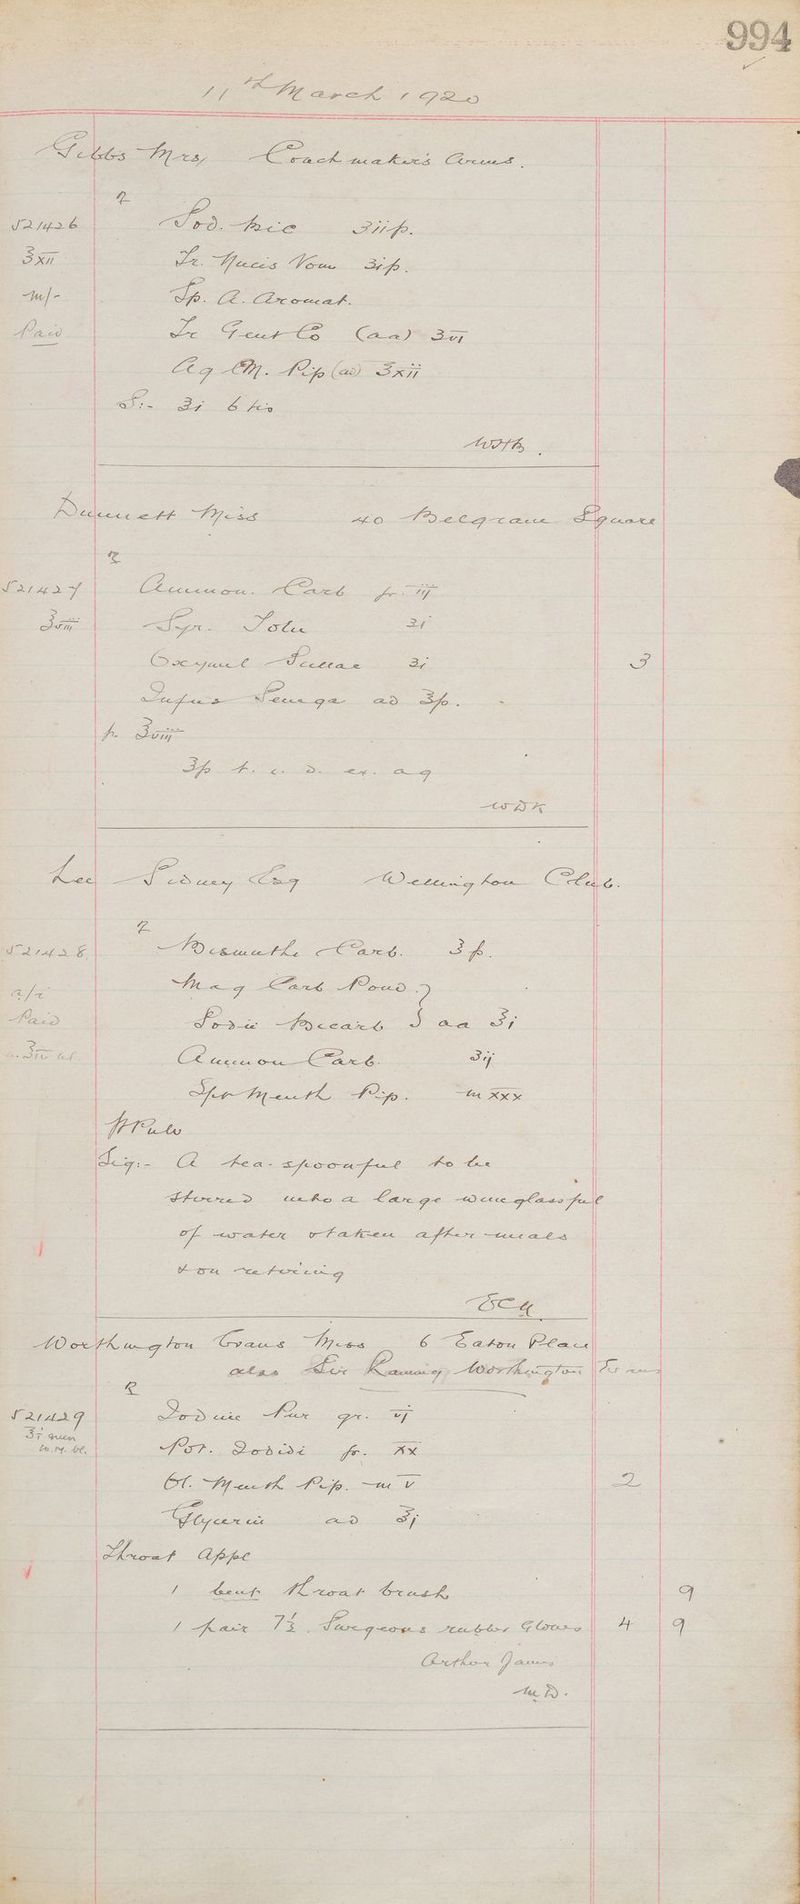 994
11th March 1920
Gibbs Mrs, Coachmakers Arms.
℞
521426 Sod. Bic ʒiiſs.
℥xii Tr. Nucis Vom ʒiſs.
m/- Sp. A. Aromat.
Paid Tr Gent Co (aa) ʒvi
Aq M. Pip (ad) ℥xii
S:- ℥i 6 tis
WHB.
Dunnett Miss 40 Belgrave Square
℞
521427 Ammon. Carb gr. iij
℥viii Syr. Tolu ʒi
Oxymel Scillae ʒi 3
Infus Senega ad ℥ſs.
ft. ℥viii
℥ſs t. i. d. ex. aq
WDK
Lee Sidney Esq Wellington Club.
℞
521428 Bismuthi Carb. ℥ſs.
Mag Carb Pond }
Paid Sodii Bicarb } aa ℥i
Ammon Carb. ʒij
Spt Menth Pip. m xxx
ft Pulv
Sig:- A tea-spoonful to be
stirred into a large wineglassful
of water & taken after meals
& on retiring
ECM.
Worthington Evans Miss 6 Eaton Place
also Sir Laming Worthington Evans
℞
521429 Iodine Pur gr. vj
Pot. Iodidi gr. xx
Ol. Menth Pip. m v 2
Glycerin ad ℥j
Throat Appl
1 bent throat brush 9
1 pair 7½ Surgeons rubber Gloves 4 9
Arthur James
M.D.